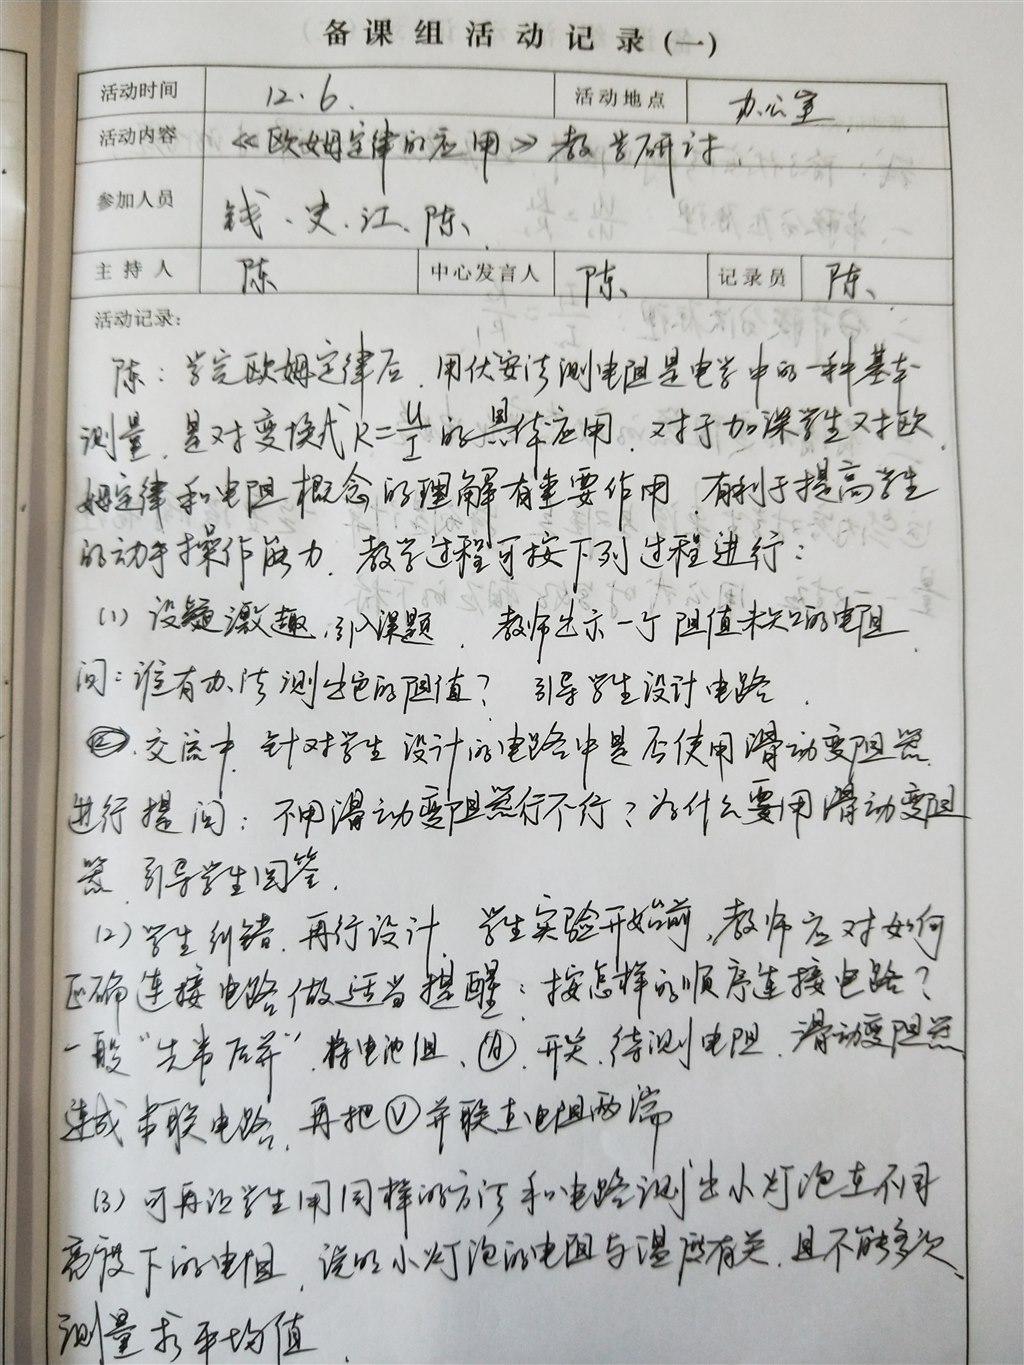 备课组活动记录(一)
活动时间 12.6. 活动地点 办公室
活动内容 《欧姆定律的应用》教学研讨
参加人员 钱、史、江、陈、
主持人 陈 中心发言人 陈、 记录员 陈、
活动记录:
陈：学完欧姆定律后，用伏安法测电阻是电学中的一种基本
测量，是对变换式R=U/I的具体应用，对于加深学生对欧
姆定律和电阻概念的理解有重要作用，有利于提高学生
的动手操作能力，教学过程可按下列过程进行：
(1) 设疑激趣，引入课题，教师出示一个阻值未知的电阻
问：谁有办法测出它的阻值？ 引导学生设计电路，
交流中，针对学生设计的电路中是否使用滑动变阻器
进行提问：不用滑动变阻器行不行？为什么要用滑动变阻
器，引导学生回答，
(2) 学生纠错，再行设计，学生实验开始前，教师应对如何
正确连接电路做适当提醒：按怎样的顺序连接电路？
一般“先串后并”，将电池组、Ⓐ、开关、待测电阻、滑动变阻器
连成串联电路，再把Ⓥ并联在电阻两端
(3) 可再让学生用同样的方法和电路测出小灯泡在不同
亮度下的电阻，说明小灯泡的电阻与温度有关，且不能多次
测量求平均值.